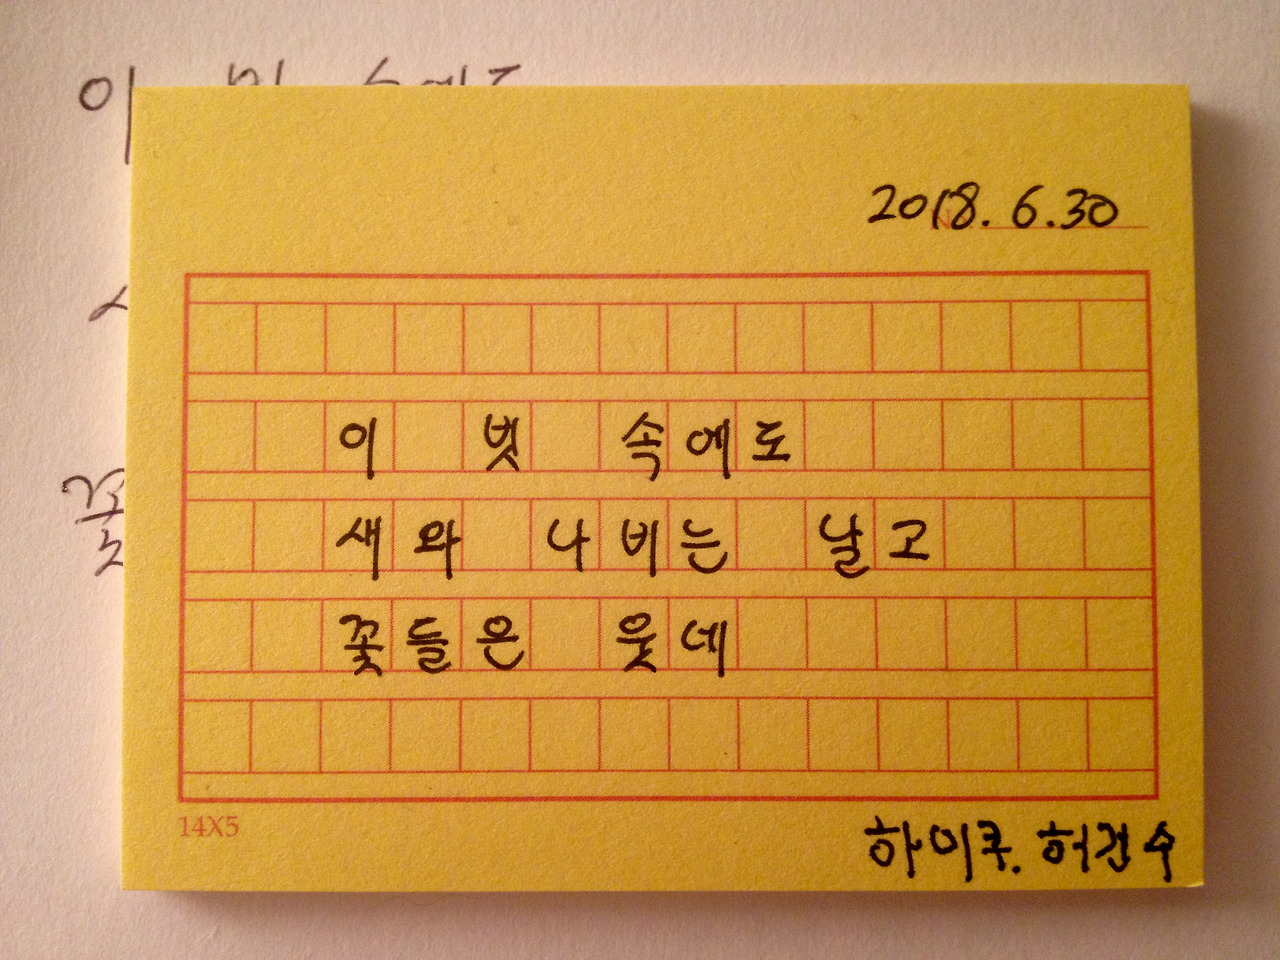 2018. 6. 30
이 벗 속에도
새와 나비는 날고
꽃들은 웃네
14X5
하이쿠. 허건수